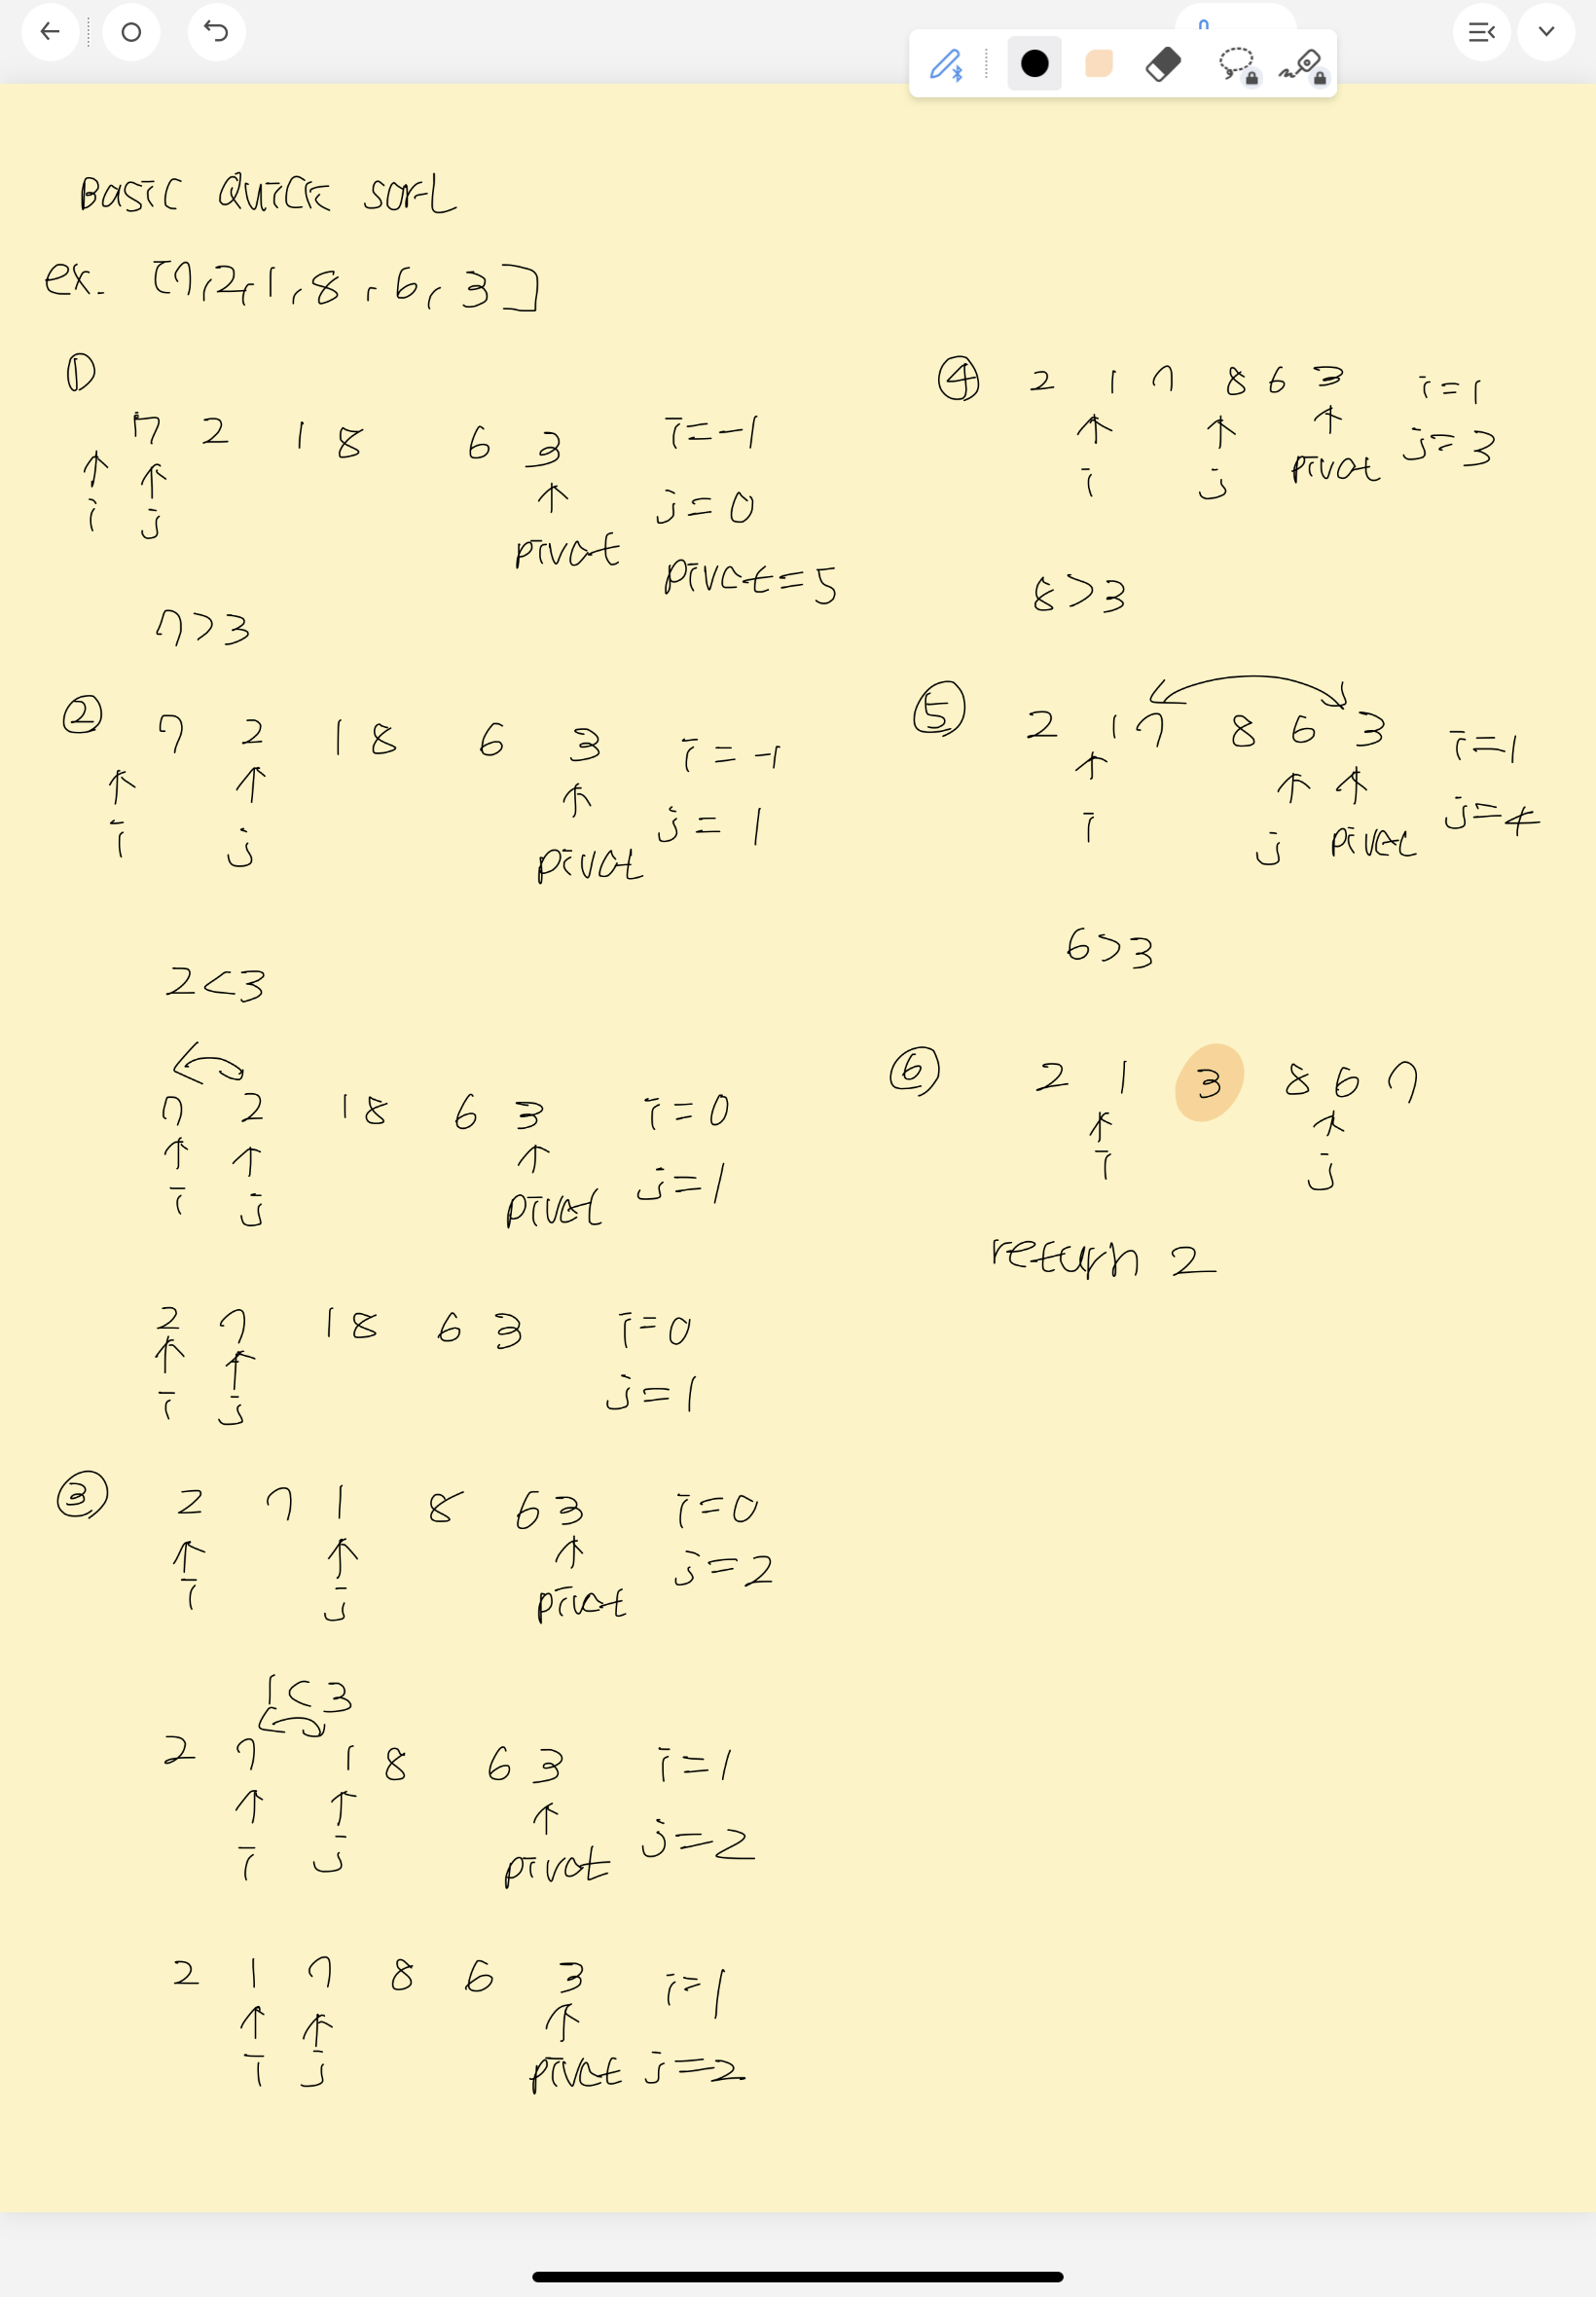 Basic Quick sort
ex. [7,2,1,8,6,3]
①
7 2 1 8 6 3 i=-1
i j j=0
pivot pivot=5
7>3
② 7 2 1 8 6 3 i=-1
i j pivot j=1
2<3
7 2 1 8 6 3 i=0
i j pivot j=1
2 7 1 8 6 3 i=0
i j j=1
③ 2 7 1 8 6 3 i=0
i j pivot j=2
1<3
2 7 1 8 6 3 i=1
i j pivot j=2
2 1 7 8 6 3 i=1
i j pivot j=2
④ 2 1 7 8 6 3 i=1
i j pivot j=3
8>3
⑤ 2 1 7 8 6 3 i=1
i j pivot j=4
6>3
⑥ 2 1 3 8 6 7
i j
return 2